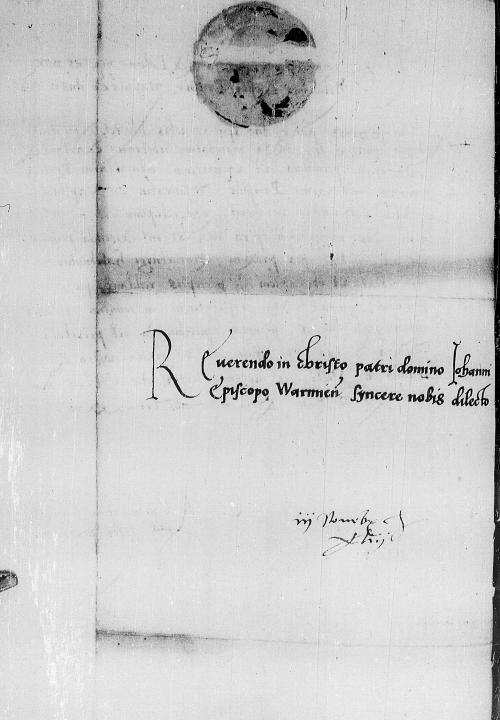 Reuerendo in christo patri domino Iohanni
Episcopo Warmien̄ syncere nobis dilecto
iij Nouemb
xlij